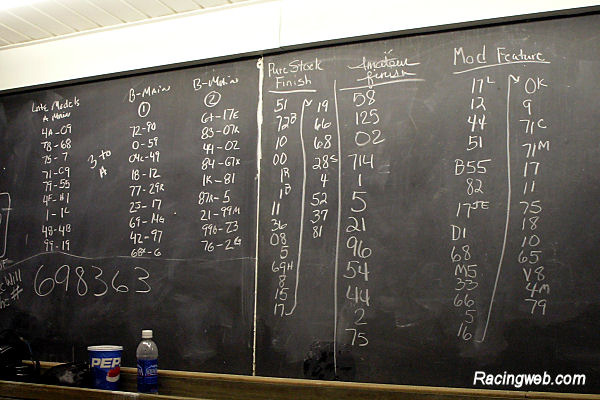 Late Models
A Main
4A-09
7B-68
75-7
71-C9
79-55
4F-H1
1-1C
48-4B
99-19
3 to
A
B-Main
1
72-90
0-59
04C-49
1B-12
77-29R
25-17
69-MG
42-97
68A-6
B-Main
2
6T-17E
83-07K
44-02
84-67X
1K-81
87A-5
21-99M
99B-23
76-2G
698363
Will
#
Pure Stock
Finish
51
72B
10
00
1R
1B
11
36
08
5
69H
8
15
17
19
66
68
28S
4
52
37
81
Amateur
finish
58
125
02
714
1
5
21
96
54
44
2
75
Mod Feature
17L
12
44
51
B55
82
17JE
D1
68
M5
33
66
5
16
0K
9
71C
71M
17
11
75
18
10
65
V8
4M
79
PEPSI
Racingweb.com